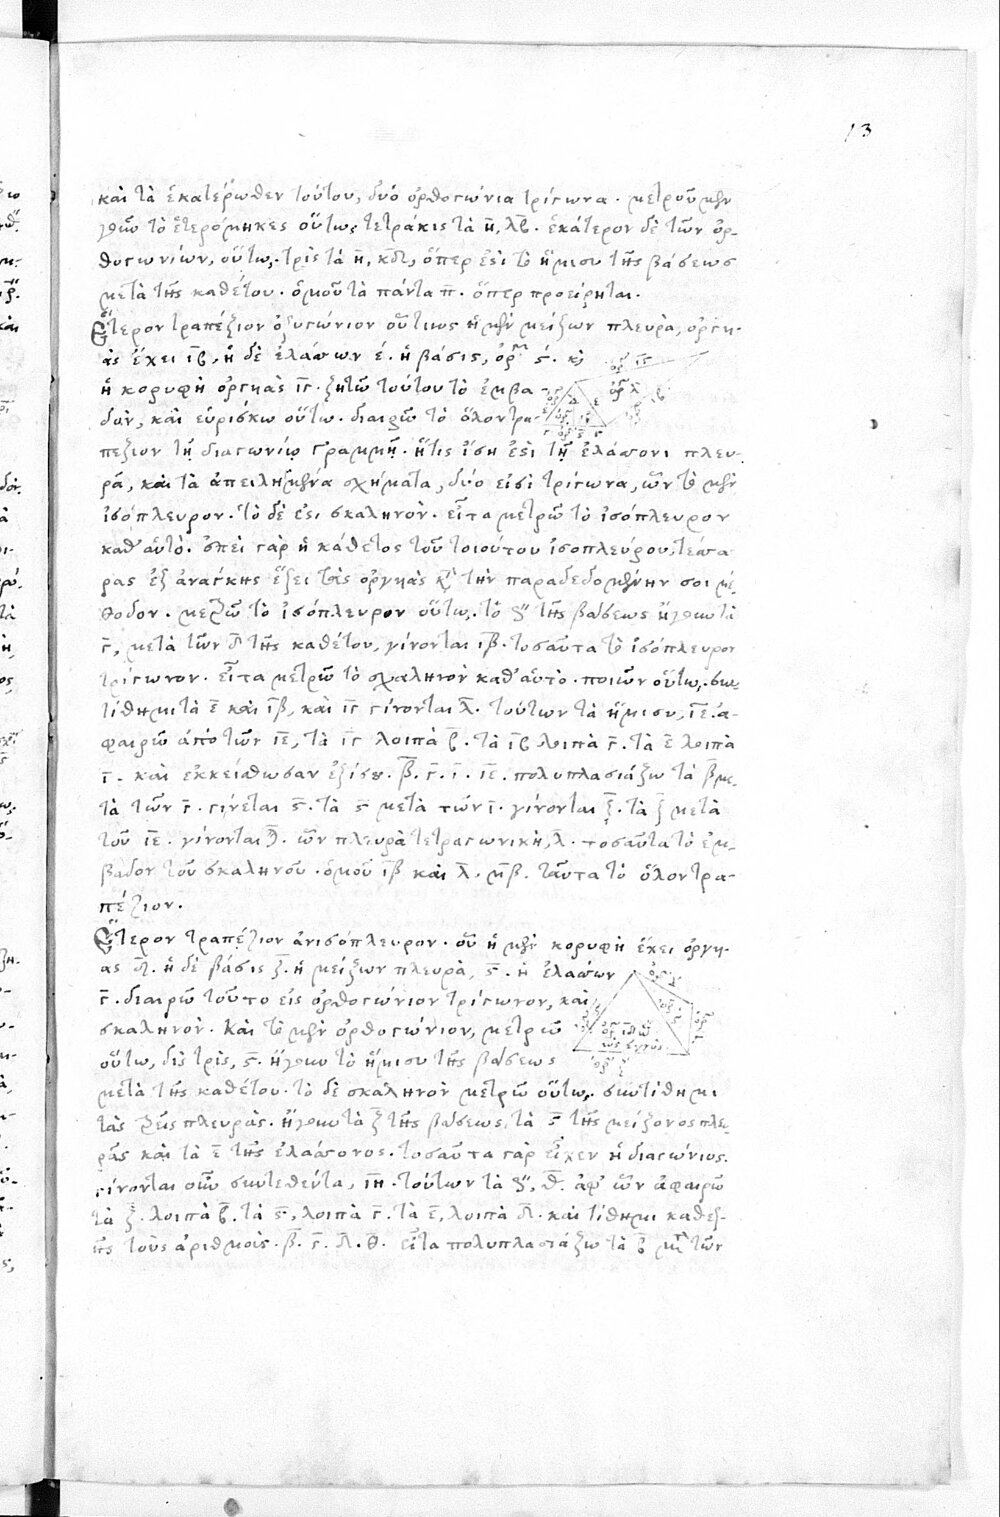 13
καὶ τὰ ἑκατέρωθεν τούτου, δύο ὀρθογώνια τρίγωνα. μετροῦμεν
γοῦν τὸ ἑτερόμηκες οὕτως τετράκις τὰ η̄, λβ. ἑκάτερον δὲ τῶν ὀρ-
θογωνίων, οὕτως. τρὶς τὰ η̄, κδ, ὅπερ ἐστὶ τὸ ἥμισυ τῆς βάσεως
μετὰ τῆς καθέτου. ὁμοῦ τὰ πάντα π̄. ὅπερ προείρηται.
Ἕτερον τραπέζιον ὀξυγώνιον οὗτινος ἡ μὲν μείζων πλευρὰ, ὀργυι-
ὰς ἔχει ιβ, ἡ δὲ ἐλάσσων ε̄. ἡ βάσις, ὀργ ς̄. καὶ
ἡ κορυφὴ ὀργυιὰς ιγ. ζητῶ τούτου τὸ ἐμβα-
δὸν, καὶ εὑρίσκω οὕτω. διαιρῶ τὸ ὅλον τρα-
πέζιον τῇ διαγωνίῳ γραμμῇ. ἥτις ἴση ἐστὶ τῇ ἐλάσσονι πλευ-
ρᾷ, καὶ τὰ ἀπειλημμένα σχήματα, δύο εἰσὶ τρίγωνα, ὧν τὸ μὲν
ἰσόπλευρον. τὸ δὲ ἐστι σκαληνὸν. εἶτα μετρῶ τὸ ἰσόπλευρον
καθ' αὑτὸ. ἐπεὶ γὰρ ἡ κάθετος τοῦ τοιούτου ἰσοπλεύρου, τέσσα-
ρας ἐξ ἀνάγκης ἕξει τὰς ὀργυιὰς κατὰ τὴν παραδεδομένην σοι μέ-
θοδον. μετρῶ τὸ ἰσόπλευρον οὕτω. τὸ ʹʹ τῆς βάσεως ἤγουν τὰ
γ̄, μετὰ τῶν δ̄ τῆς καθέτου, γίνονται ιβ. τοσαῦτα τὸ ἰσόπλευρον
τρίγωνον. εἶτα μετρῶ τὸ σκαληνὸν καθ' αὑτὸ. ποιῶν οὕτω. συν-
τίθημι τὰ ε̄ καὶ ιβ, καὶ ιγ γίνονται λ̄. τούτων τὰ ἥμισυ, ιε. ἀ-
φαιρῶ ἀπὸ τῶν ιε, τὰ ιγ λοιπὰ β. τὰ ιβ λοιπὰ γ̄. τὰ ε̄ λοιπὰ
ῑ. καὶ ἐκκείσθωσαν ἐξίσου. β̄. γ̄. ῑ. ιε. πολυπλασιάζω τὰ β̄ με-
τὰ τῶν γ̄. γίνεται ς̄. τὰ ς̄ μετὰ τῶν ῑ. γίνονται ξ̄. τὰ ξ̄ μετὰ
τοῦ ιε. γίνονται ϡ. ὧν πλευρὰ τετραγωνικὴ, λ̄. τοσαῦτα τὸ ἐμ-
βαδὸν τοῦ σκαληνοῦ. ὁμοῦ ιβ καὶ λ̄, μβ. ταῦτα τὸ ὅλον τρα-
πέζιον.
Ἕτερον τραπέζιον ἀνισόπλευρον. οὗ ἡ μὲν κορυφὴ ἔχει ὀργυι-
ας δ̄. ἡ δὲ βάσις ζ̄. ἡ μείζων πλευρὰ, ς̄. ἡ ἐλάσσων
γ̄. διαιρῶ τοῦτο εἰς ὀρθογώνιον τρίγωνον, καὶ
σκαληνὸν. καὶ τὸ μὲν ὀρθογώνιον, μετρῶ
οὕτω, δὶς τρὶς, ς̄. ἤγουν τὸ ἥμισυ τῆς βάσεως
μετὰ τῆς καθέτου. τὸ δὲ σκαληνὸν μετρῶ οὕτω. συντίθημι
τὰς τρεῖς πλευρὰς. ἤγουν τὰ ζ̄ τῆς βάσεως, τὰ ς̄ τῆς μείζονος πλευ-
ρᾶς καὶ τὰ ε̄ τῆς ἐλάσσονος. τοσαῦτα γὰρ εἶχεν ἡ διαγώνιος.
γίνονται οὖν συντεθέντα, ιη. τούτων τὰ ʹʹ, θ̄. ἀφ' ὧν ἀφαιρῶ
τὰ ζ̄. λοιπὰ β̄. τὰ ς̄, λοιπὰ γ̄. τὰ ε̄, λοιπὰ δ̄. καὶ τίθημι καθεξ-
ῆς τοὺς ἀριθμοὺς. β̄. γ̄. δ̄. θ̄. εἶτα πολυπλασιάζω τὰ β̄ μετὰ τῶν